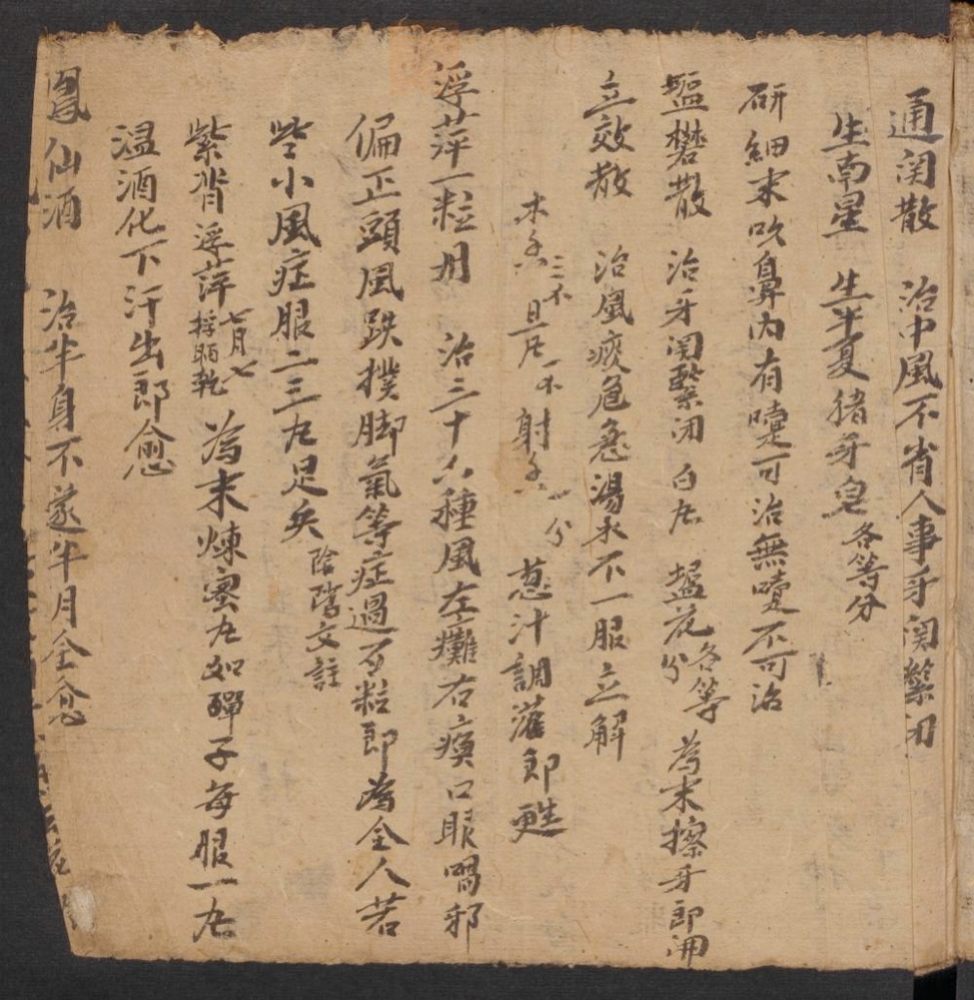 通関散　治中風不省人事牙関緊闭
生南星　生半夏猪牙皂各等分
研細末吹鼻内有嚏可治無嚏不可治
塩礬散　治牙関緊闭　白凡　塩花各等分　為末擦牙即開
立效散　治風痰危急湯水不一服立解
木香二不　皂凡一不　射香一分　葱汁調灌即甦
浮萍一粒丹　治三十六種風左癱右瘓口眼喎邪
偏正頭風跌撲脚氣等症過百粒即為全人若
些小風症服二三九足矣　陰隲文註
紫背浮萍七月七採晒乾　為末煉蜜丸如彈子每服一丸
温酒化下汗出即愈
鳳仙酒　治半身不遂半月全愈